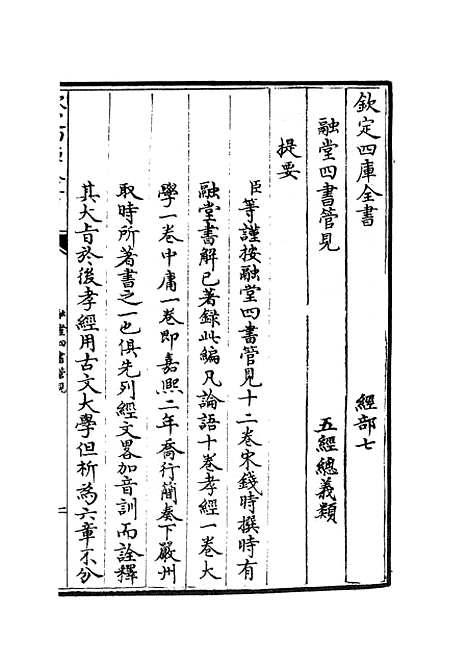 欽定四庫全書　經部七
融堂四書管見　五經總義類
提要
臣等謹按融堂四書管見十二卷宋錢時撰時有
融堂書解已著錄此編凡論語十卷孝經一卷大
學一卷中庸一卷即嘉熙二年喬行簡奏下嚴州
取時所著書之一也俱先列經文畧加音訓而詮釋
其大旨於後孝經用古文大學但析為六章不分
融堂四書管見